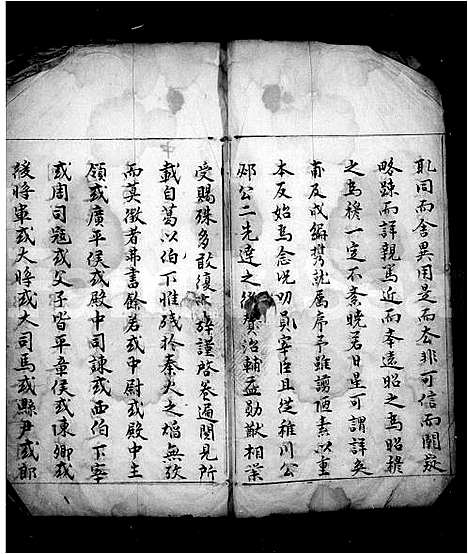 耴同而舍異用是而去非可信而闕疑
略踈而詳親寫近而奉遠昭之為昭穆
之為穆一定不紊曉若日星可謂詳矣
甫反成編携就属序予雖譾陋素以重
本反始為念况叨員宰臣且從稚川公
邲公二先達之後資治輔益勋猷相業
受賜殊多敢復辞謹啓卷遍閱見所
載自葛以伯下惟殘於秦火之熖無攷
而莫徵者弗書餘若或中尉或殿中主
領或廣平侯或殿中司諫或西伯下宰
或周司寇或父子皆平章侯或陳卿或
綏將軍或大將或大司馬或縣尹或郎